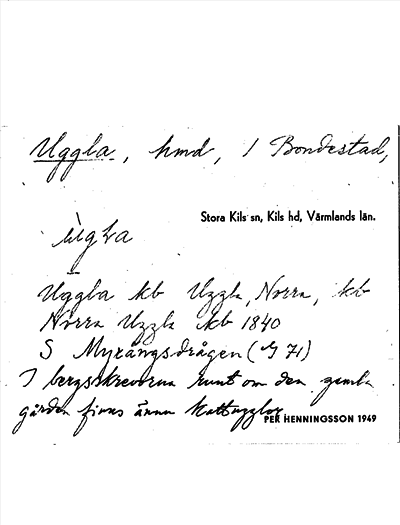 Uggla, hmd, / Bondestad,
Stora Kils sn, Kils hd, Värmlands län.
ùgla
Uggla kb Uggla, Norra, kb
Norra Uggla kb 1840
S Myrängsdrågen (y 71)
I bergsskrevorna runt om den gamla
gården finns ännu Kattugglor
PER HENNINGSSON 1949